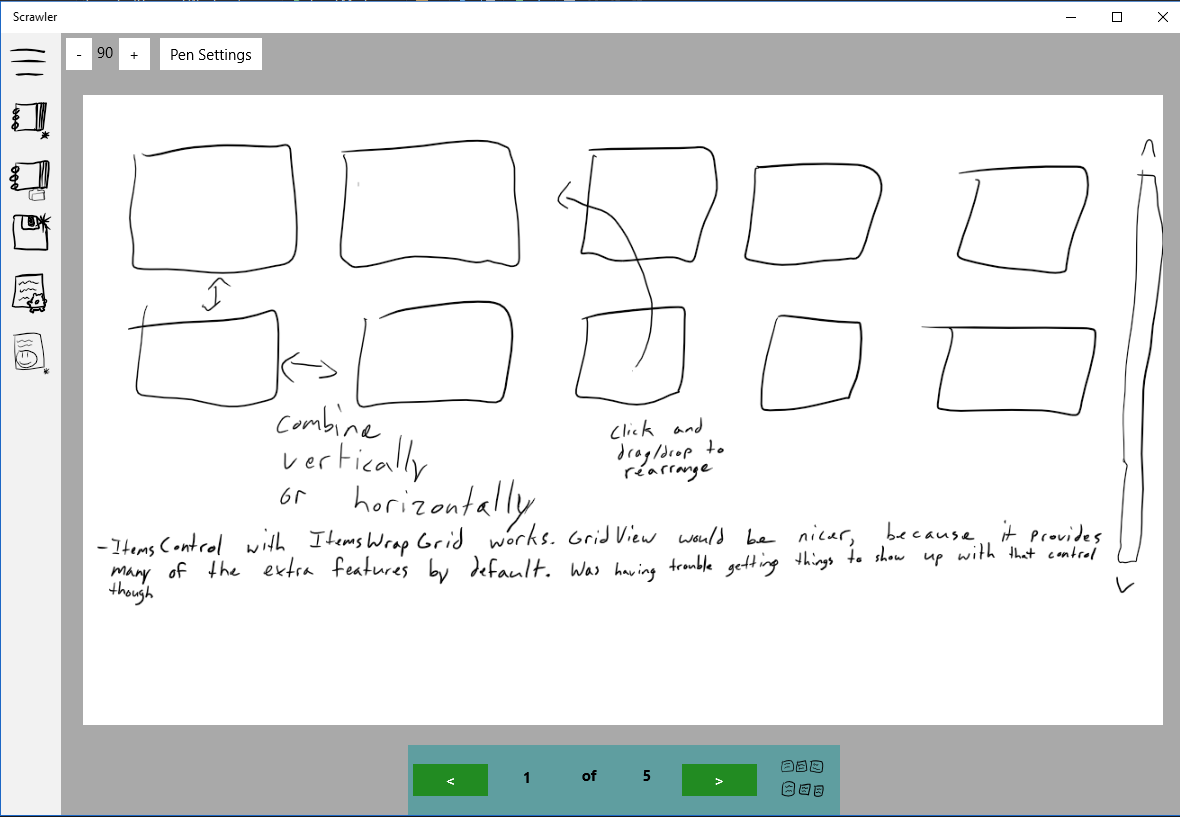 Scrawler
- 90 + Pen Settings
Combine
vertically
or horizontally
click and
drag/drop to
rearrange
- ItemsControl with ItemsWrapGrid works. GridView would be nicer, because it provides
many of the extra features by default. Was having trouble getting things to show up with that control
though
< 1 of 5 >